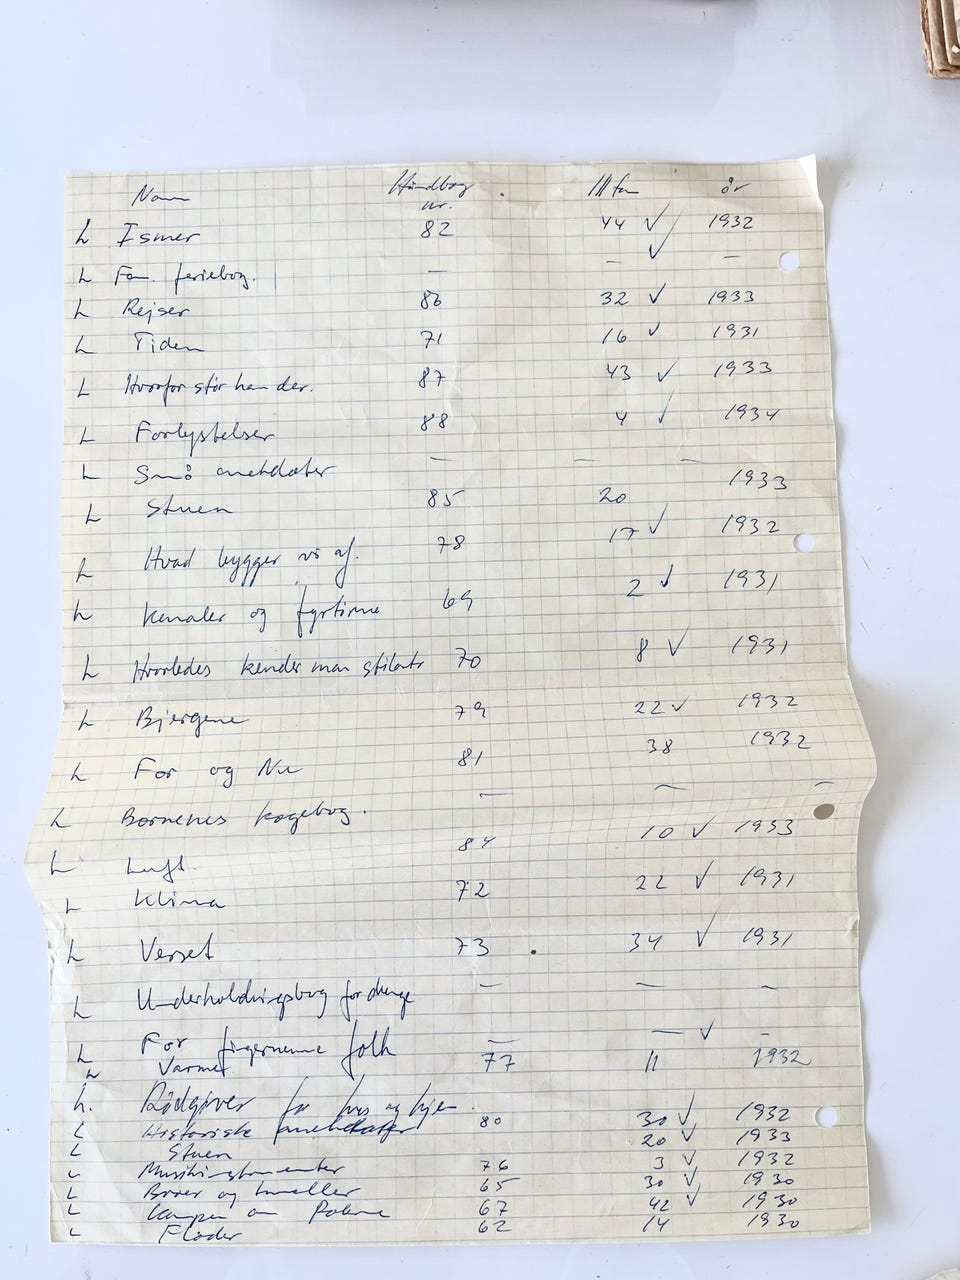 Navn Håndbog nr. Ill fra år
L Ismer 82 44 ✓ 1932
L Fam. feriebog. — — ✓ —
L Rejser 86 32 ✓ 1933
L Tiden 71 16 ✓ 1931
L Hvorfor står han der. 87 43 ✓ 1933
L Forlystelser 88 4 ✓ 1934
L Små anekdoter — — —
L Stuen 85 20 1933
L Hvad bygger vi af. 78 17 ✓ 1932
L Kanaler og fyrtårne 69 2 ✓ 1931
L Hvorledes kender man stilarter 70 8 ✓ 1931
L Bjergene 79 22 ✓ 1932
L Før og Nu 81 38 1932
L Børnenes kogebog. — — —
L Luft. 84 10 ✓ 1933
L Klima 72 22 ✓ 1931
L Verset 73 34 ✓ 1931
L Underholdningsbog for drenge — — —
L For fingernemme folk — — ✓ —
L Varmet 77 11 1932
L. Rådgiver for hus og hjem.
L Historiske anekdoter 80 30 ✓ 1932
L Stuen 20 ✓ 1933
L Musikinstrumenter 76 3 ✓ 1932
L Broer og tunneller 65 30 ✓ 1930
L Kampen om Polerne 67 42 ✓ 1930
L Floder 62 14 1930